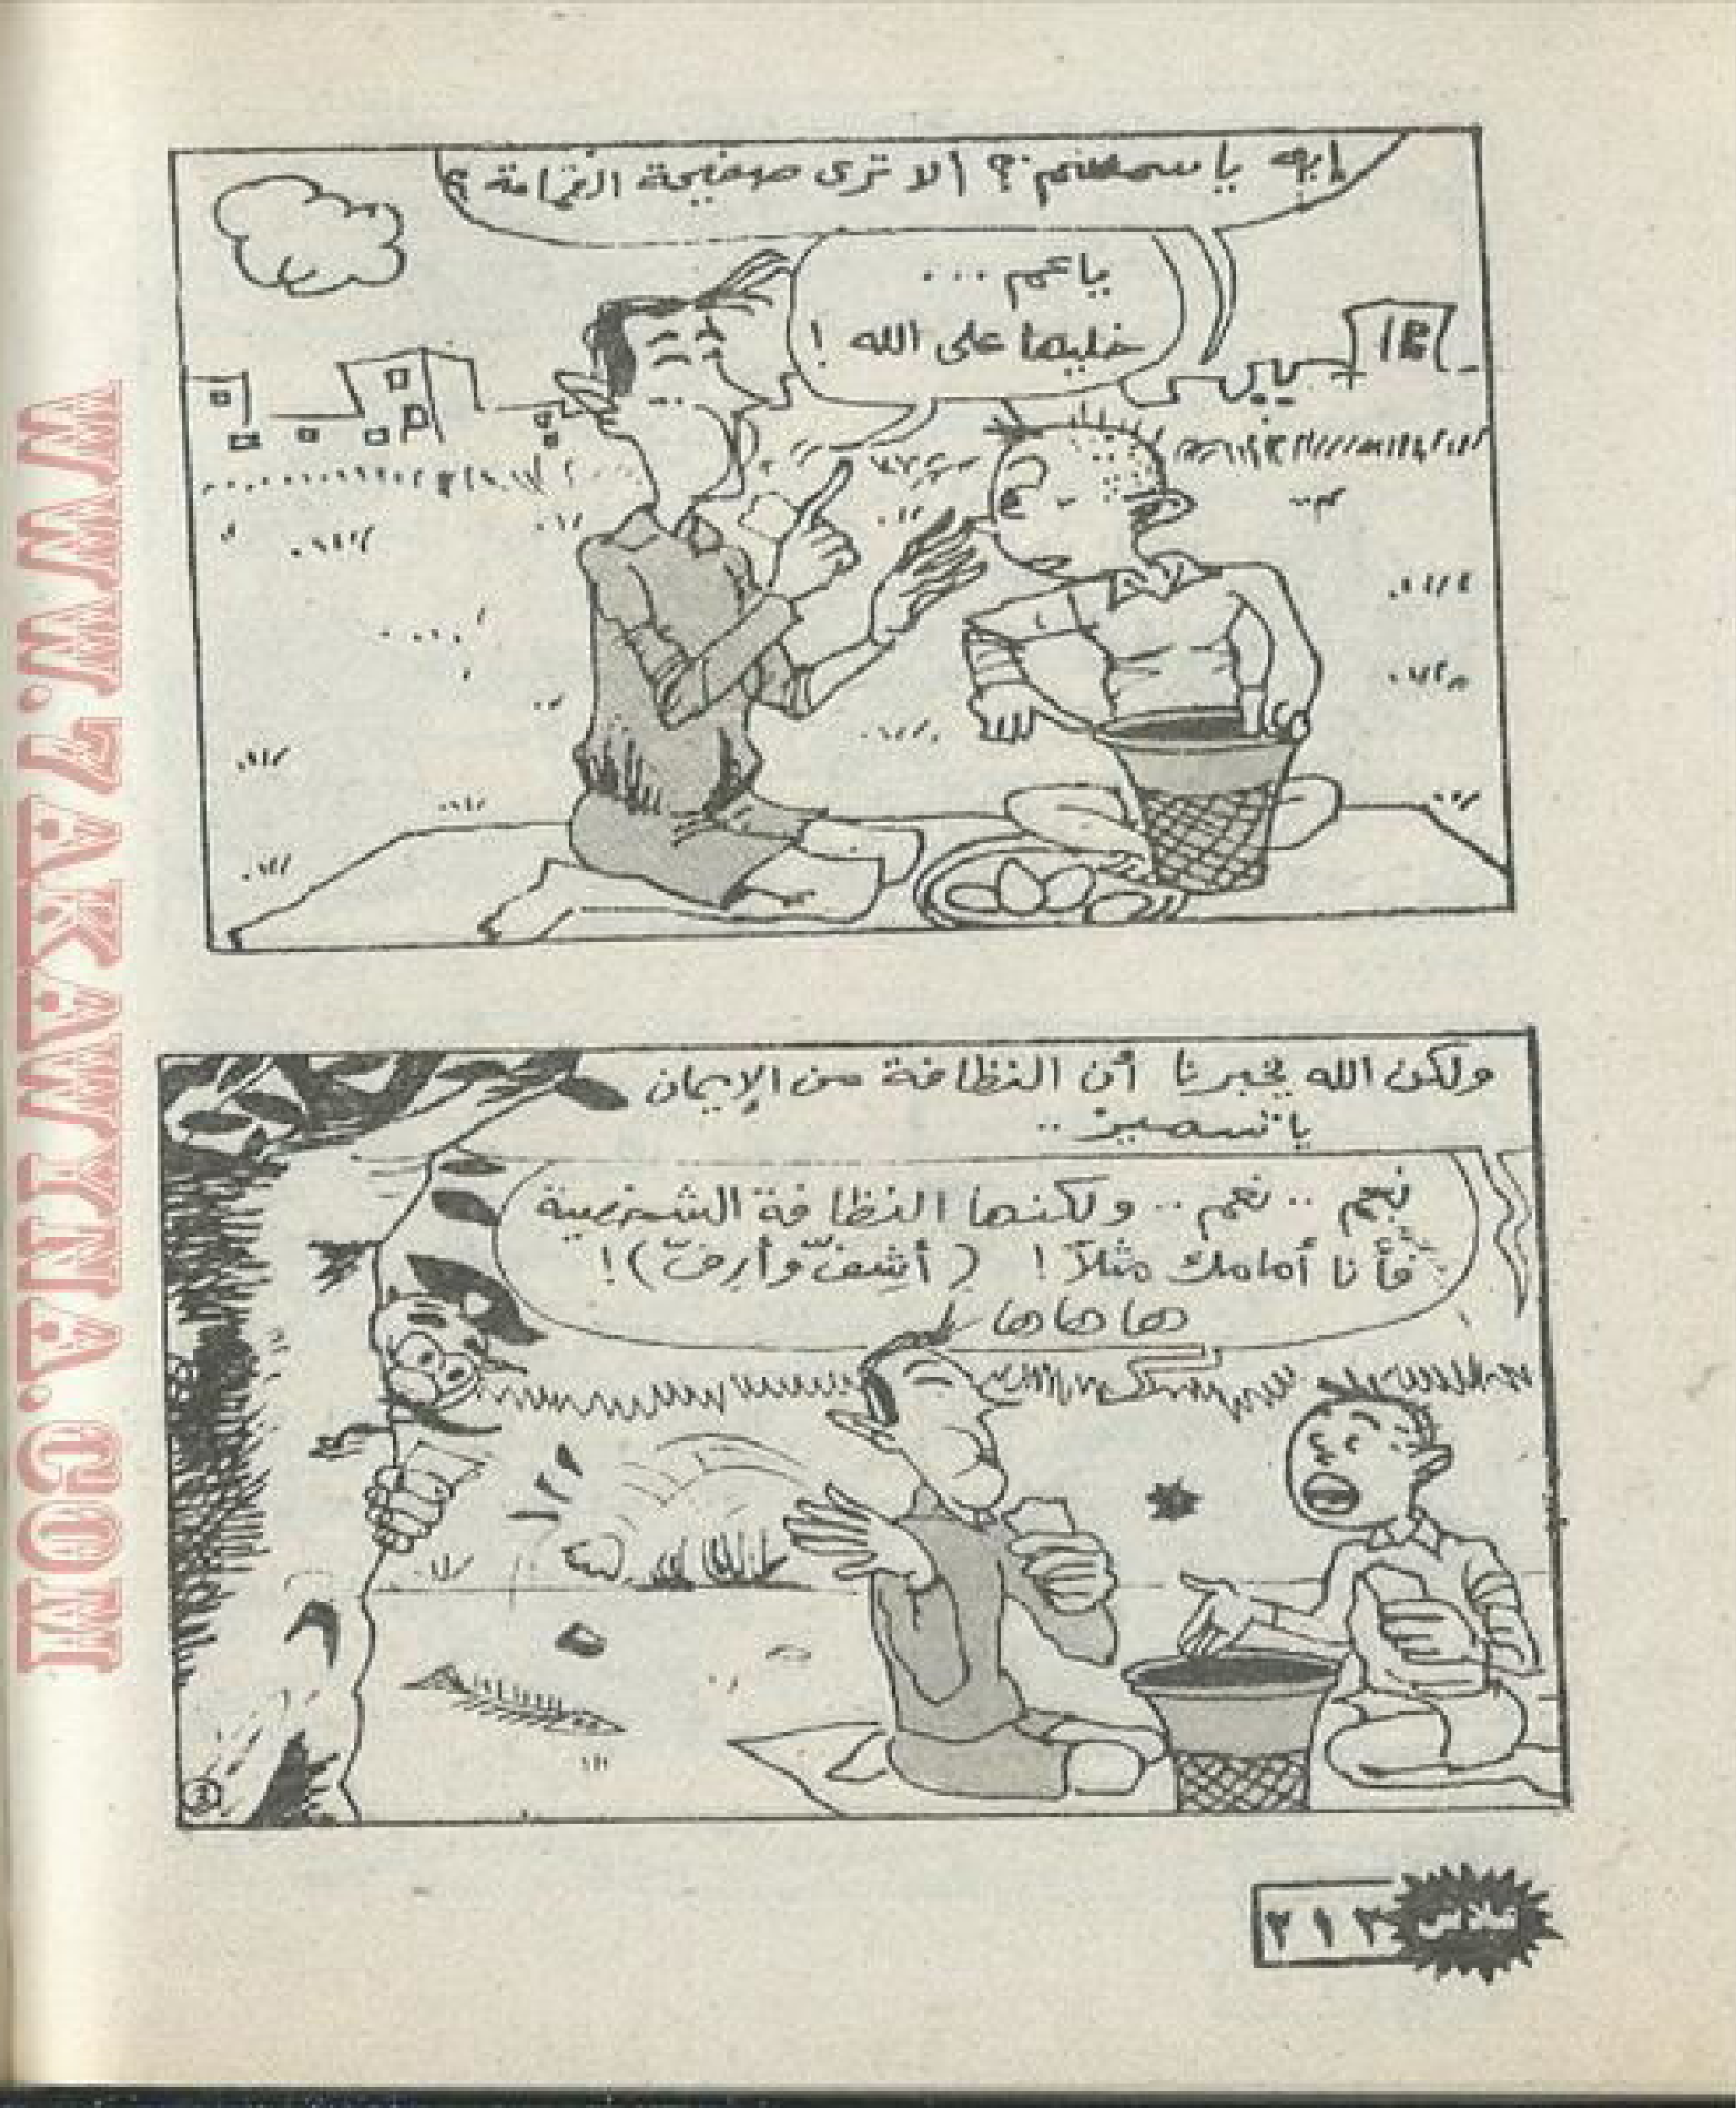 إيه يا ؟ ألا ترى صفيحة القمامة ؟
ياعم ...
خليها على الله !
ولكن الله يخبرنا أن النظافة من الإيمان
يا سمير ..
نعم .. نعم .. ولكنها النظافة الشخصية
فأنا أمامك مثلاً ! ( أشفّ وأرفّ ) !
ها ها ها
٢١٣
WWW.ZAKAWTNA.COM